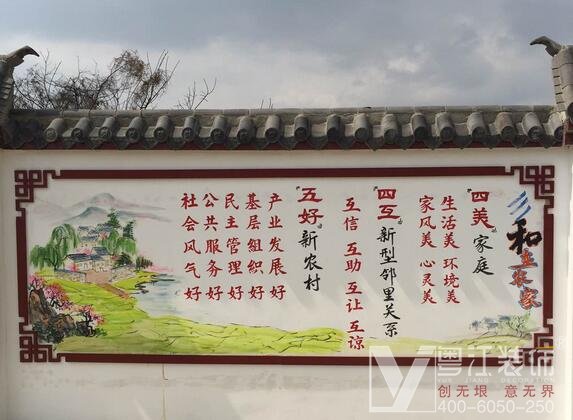 "四美"家庭
生活美 环境美
家风美 心灵美
"四互"新型邻里关系
互信 互助 互让 互谅
"五好"新农村
产业发展好
基层组织好
民主管理好
公共服务好
社会风气好
粤江装饰
YUE JIANG DECORATION
创无垠 意无界
400-6050-250